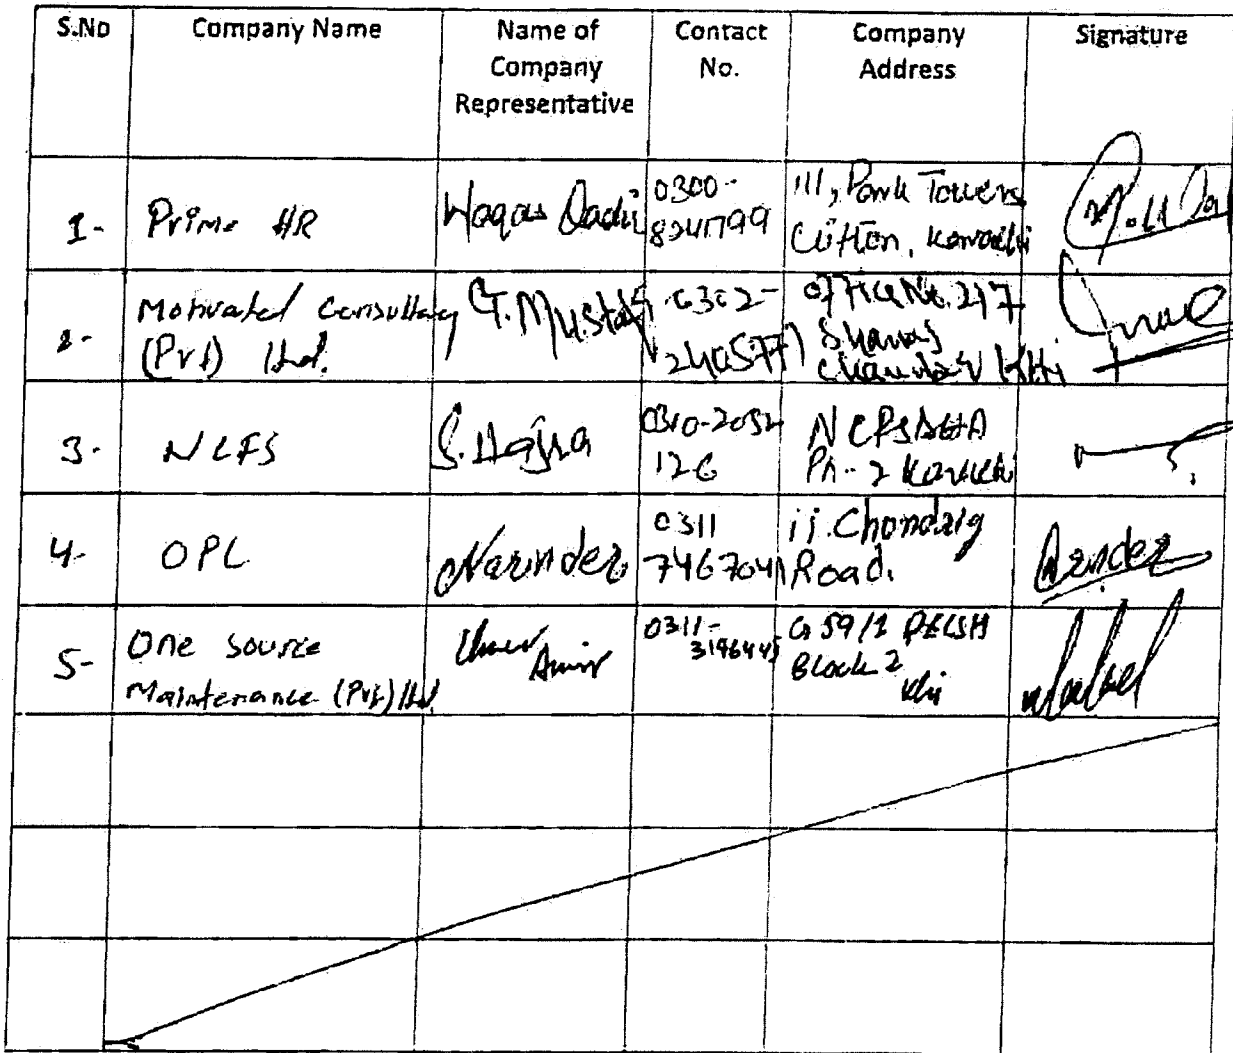 S.No Company Name Name of Company Representative Contact No. Company Address Signature
1- Prime HR Waqas Qadri 0300- 111, Park Towers
Clifton, Karachi
2- Motivated Consultancy (Pvt) Ltd. G. Mustafa 0302- Office No. 217
Chamber Khi
3- NCFS S. Hajra 0310-2032 126
Ph-2 Karachi
4- OPL Narinder 0311 7467041 i.i. Chondrig Road.
5- One Source Maintenance (Pvt) Ltd. Umer Amir 0311- 3196445 G 59/1 PECSH Block 2 Khi